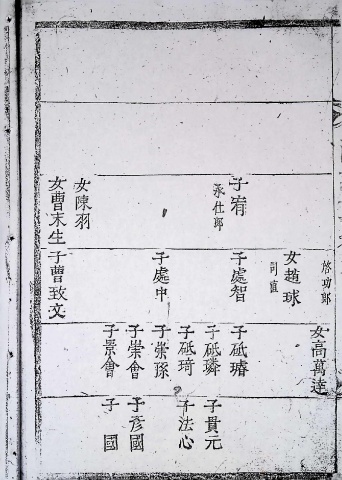 子宥
承仕郎
女陳羽
女曹末生
啓功郎
女趙球
司直
子處智
子處中
子曹致文
女高萬達
子砥璿
子砥璘
子砥琦
子崇孫
子崇會
子景會
子貴元
子法心
子彦國
子國